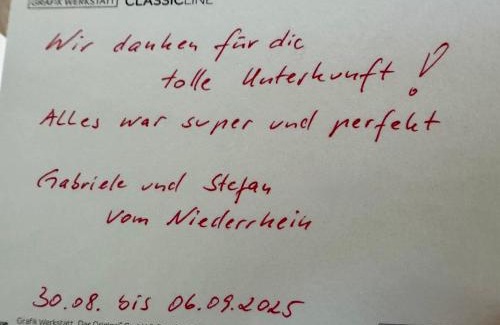 GRAFIK WERKSTATT CLASSICLINE
Wir danken für die
tolle Unterkunft!
Alles war super und perfekt
Gabriele und Stefan
vom Niederrhein
30.08. bis 06.09.2025
Grafik Werkstatt „Das Original"